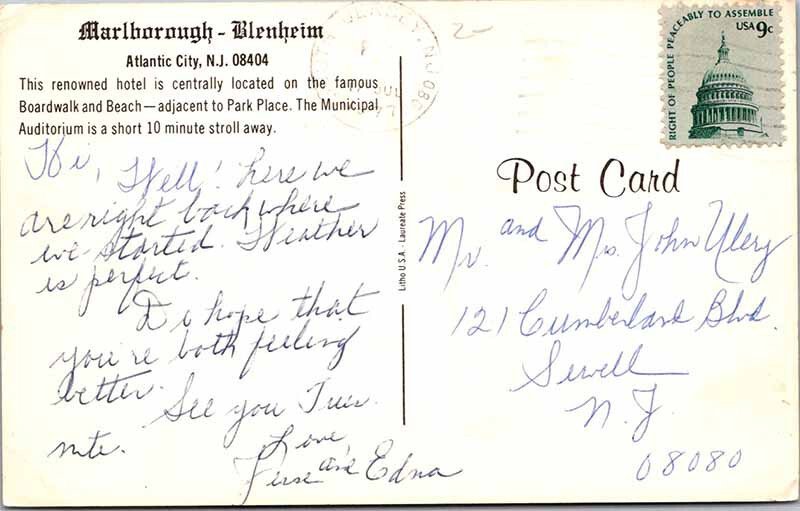 Marlborough - Blenheim
Atlantic City, N.J. 08404
This renowned hotel is centrally located on the famous
Boardwalk and Beach — adjacent to Park Place. The Municipal
Auditorium is a short 10 minute stroll away.
Hi, Well! here we
are right back where
we started. Weather
is perfect.
Do hope that
you're both feeling
better.
See you Tues.
nite.
Love
and Edna
Litho U.S.A. - Laureate Press
RIGHT OF PEOPLE PEACEABLY TO ASSEMBLE
USA 9c
Post Card
Mr. and Mrs. John Ulery
121 Cumberland Blvd.
Sewell
N.J.
08080